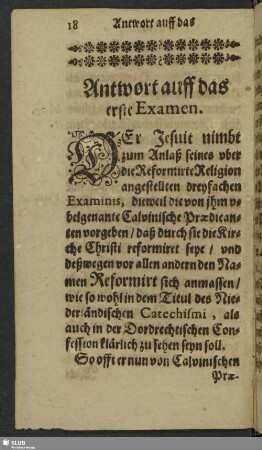 18 Antwort auff das
Antwort auff das
erste Examen.
DEr Jesuit nimbt
zum Anlaß seines vber
die Reformirte Religion
angestellten dreyfachen
Examinis, dieweil die von jhm v-
belgenante Calvinische Prædican-
ten vorgeben / daß durch sie die Kir-
che Christi reformiret seye / vnd
deßwegen vor allen andern den Na-
men Reformirt sich anmassen /
wie so wohl in dem Titul des Nie-
derländischen Catechismi, als
auch in der Dordrechtischen Con-
fession klärlich zu sehen seyn soll.
So offt er nun von Calvinischen
Præ-
SLUB